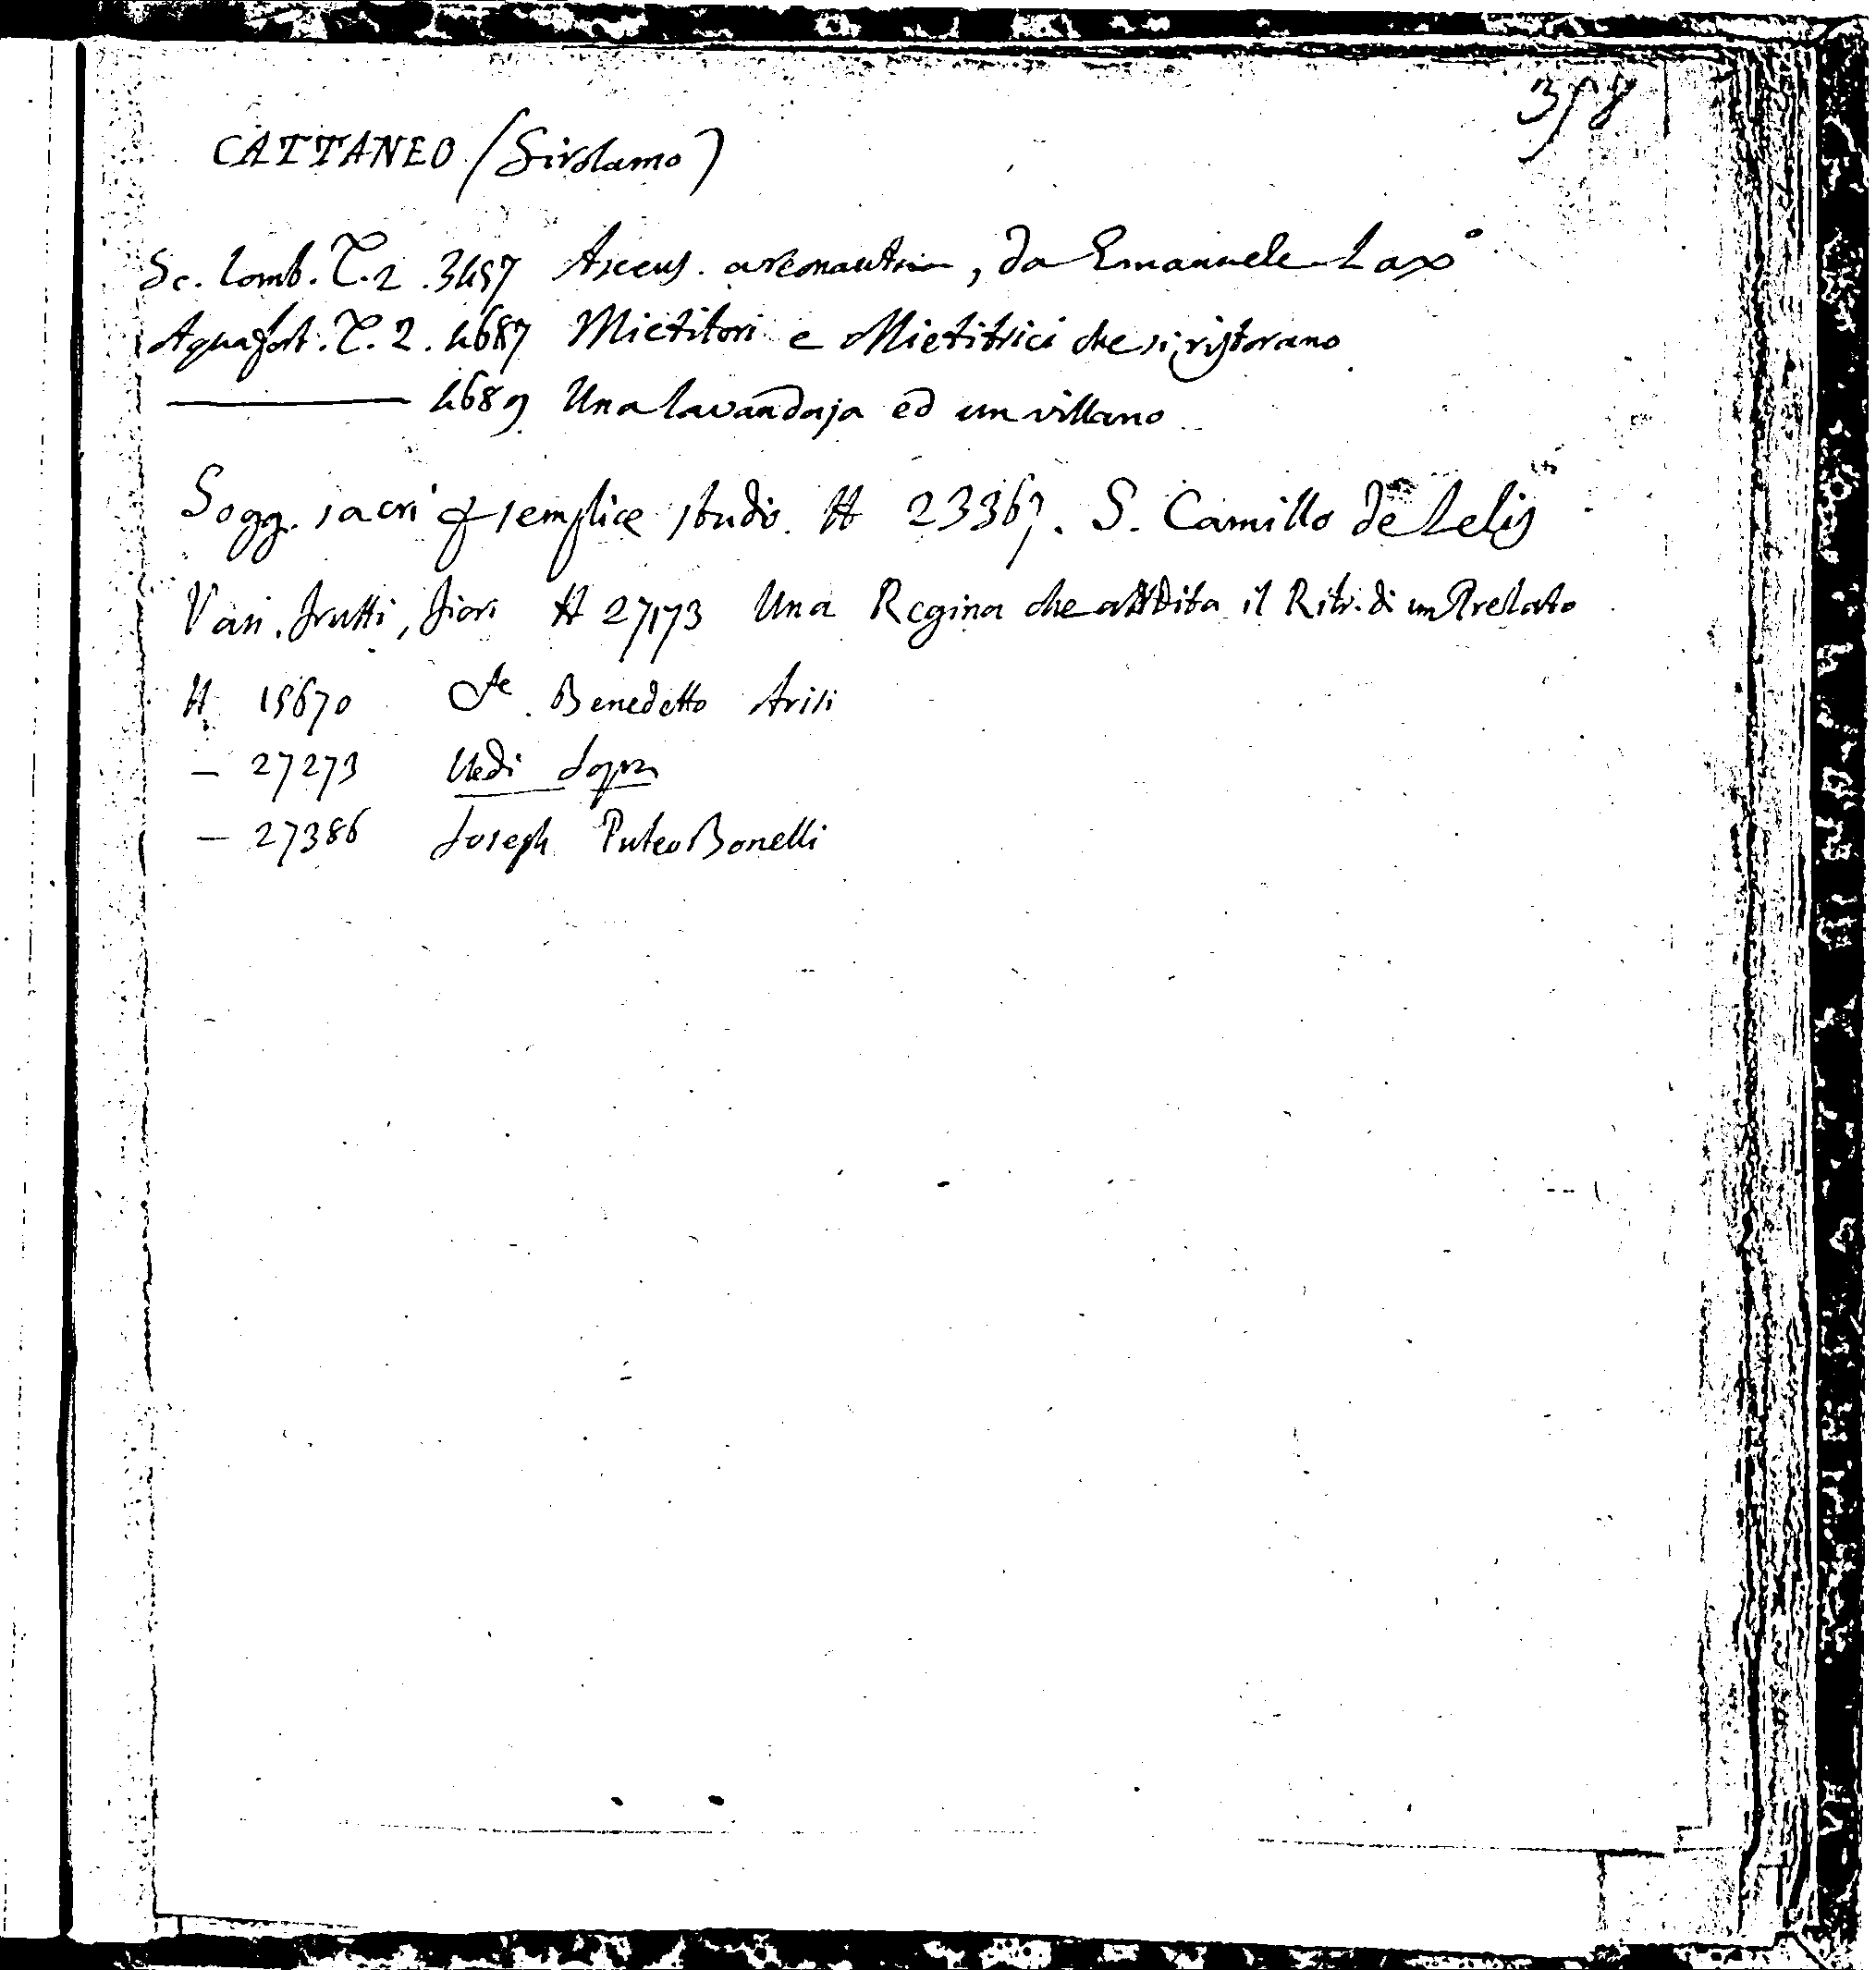 358
CATTANEO (Girolamo)
Sc. Lomb. T. 2. 3457 Ascens. areonautica, da Emanuele Lax°
Aquafort. T. 2. 4687 Mietitori e Mietitrici che si ristorano
——— 4689 Una lavandaja ed un villano
Sogg. sacri p semplice studio. H 23367. S. Camillo de Lelis
Vari. frutti, fiori H 27173 Una Regina che addita il Ritr. di un Prelato
H 15670 Benedetto Arisi
— 27273 Vedi sopra
— 27386 Joseph Puteo Bonelli